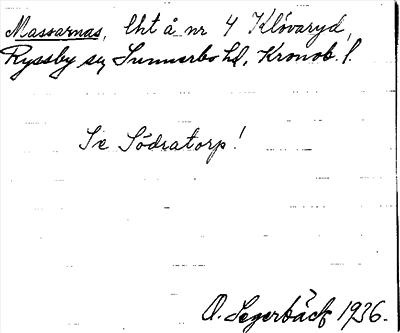 Massarnas, lht å nr 4 Klövaryd,
Ryssby sn Sunnerbo hd, Kronob. l.
Se Södratorp!
O. Segerbäck 1936.